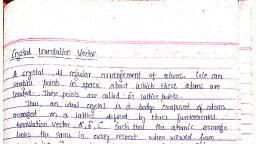 Crystal Translation Vector
A crystal is regular arrangement of atoms. We can
imagine points in space about which these atoms are
located. These points are called as lattice points.
Thus, an ideal crystal is a body composed of atoms
arranged on a lattice defined by three fundamental
translation vector a, b, c such that the atomic arrange
looks the same in every respect when viewed from